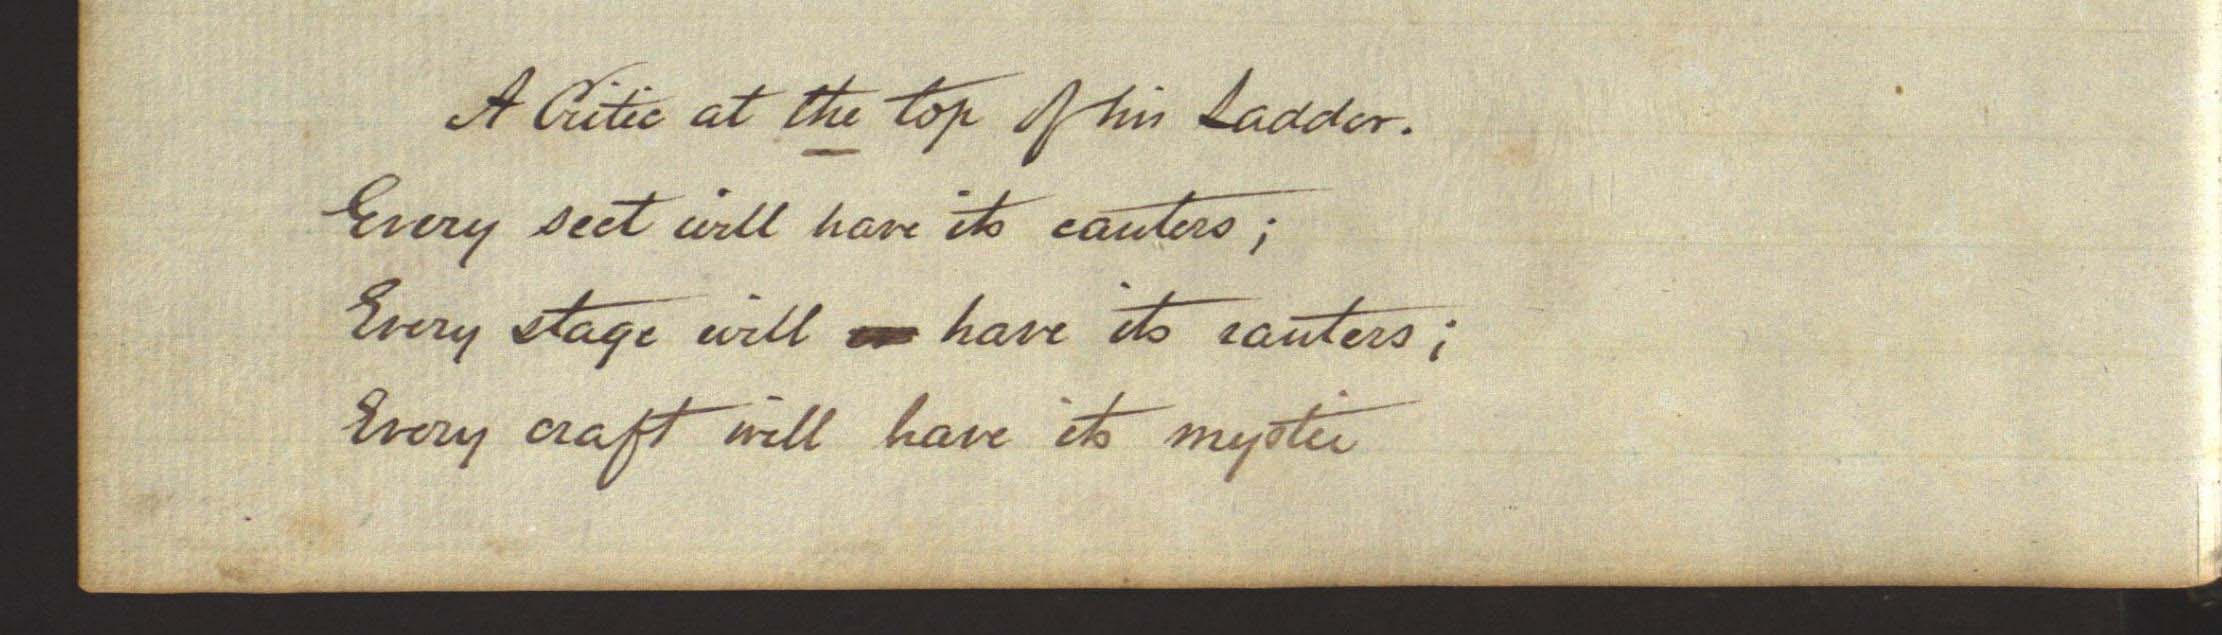 A Critic at the top of his Ladder.
Every sect will have its canters;
Every stage will have its ranters;
Every craft will have its mystic